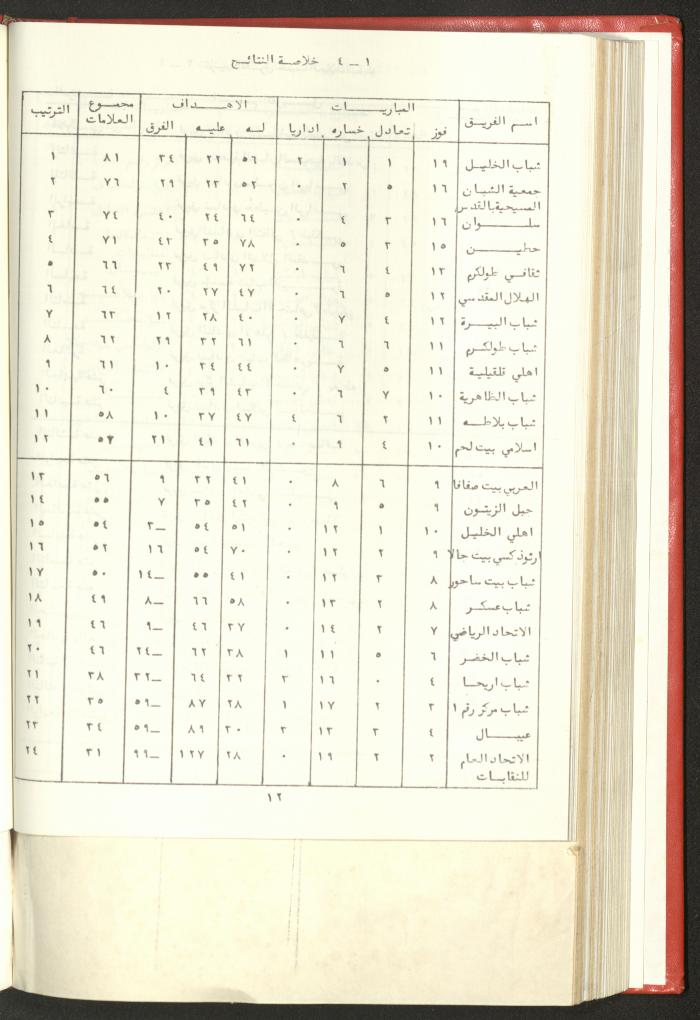 ١ - ٤ خلاصة النتائج
اسم الفريق المباريات الاهداف مجموع العلامات الترتيب
فوز تعادل خساره اداريا له عليه الفرق
شباب الخليل ١٩ ١ ١ ٢ ٥٦ ٢٢ ٣٤ ٨١ ١
جمعية الشبان ١٦ ٥ ٢ ٠ ٥٢ ٢٣ ٢٩ ٧٦ ٢
المسيحية بالقدس
سلوان ١٦ ٣ ٤ ٠ ٦٤ ٢٤ ٤٠ ٧٤ ٣
حطين ١٥ ٣ ٥ ٠ ٧٨ ٣٥ ٤٣ ٧١ ٤
ثقافي طولكرم ١٣ ٤ ٦ ٠ ٧٢ ٤٩ ٢٣ ٦٦ ٥
الهلال المقدسي ١٢ ٥ ٦ ٠ ٤٧ ٢٧ ٢٠ ٦٤ ٦
شباب البيرة ١٢ ٤ ٧ ٠ ٤٠ ٢٨ ١٢ ٦٣ ٧
شباب طولكرم ١١ ٦ ٦ ٠ ٦١ ٣٢ ٢٩ ٦٢ ٨
اهلي قلقيلية ١١ ٥ ٧ ٠ ٤٤ ٣٤ ١٠ ٦١ ٩
شباب الظاهرية ١٠ ٧ ٦ ٠ ٤٣ ٣٩ ٤ ٦٠ ١٠
شباب بلاطه ١١ ٢ ٦ ٤ ٤٧ ٣٧ ١٠ ٥٨ ١١
اسلامي بيت لحم ١٠ ٤ ٩ ٠ ٦١ ٤١ ٢١ ٥٧ ١٢
العربي بيت صفافا ٩ ٦ ٨ ٠ ٤١ ٣٢ ٩ ٥٦ ١٣
جبل الزيتون ٩ ٥ ٩ ٠ ٤٢ ٣٥ ٧ ٥٥ ١٤
اهلي الخليل ١٠ ١ ١٢ ٠ ٥١ ٥٤ -٣ ٥٤ ١٥
ارثوذكسي بيت جالا ٩ ٢ ١٢ ٠ ٧٠ ٥٤ ١٦ ٥٢ ١٦
شباب بيت ساحور ٨ ٣ ١٢ ٠ ٤١ ٥٥ -١٤ ٥٠ ١٧
شباب عسكر ٨ ٢ ١٣ ٠ ٥٨ ٦٦ -٨ ٤٩ ١٨
الاتحاد الرياضي ٧ ٢ ١٤ ٠ ٣٧ ٤٦ -٩ ٤٦ ١٩
شباب الخضر ٦ ٥ ١١ ١ ٣٨ ٦٢ -٢٤ ٤٦ ٢٠
شباب اريحا ٤ ٠ ١٦ ٣ ٣٢ ٦٤ -٣٢ ٣٨ ٢١
شباب مركز رقم ١ ٣ ٢ ١٧ ١ ٢٨ ٨٧ -٥٩ ٣٥ ٢٢
عيبال ٤ ٣ ١٣ ٣ ٣٠ ٨٩ -٥٩ ٣٤ ٢٣
الاتحاد العام ٢ ٢ ١٩ ٠ ٢٨ ١٢٧ -٩٩ ٣١ ٢٤
للنقابات
١٢